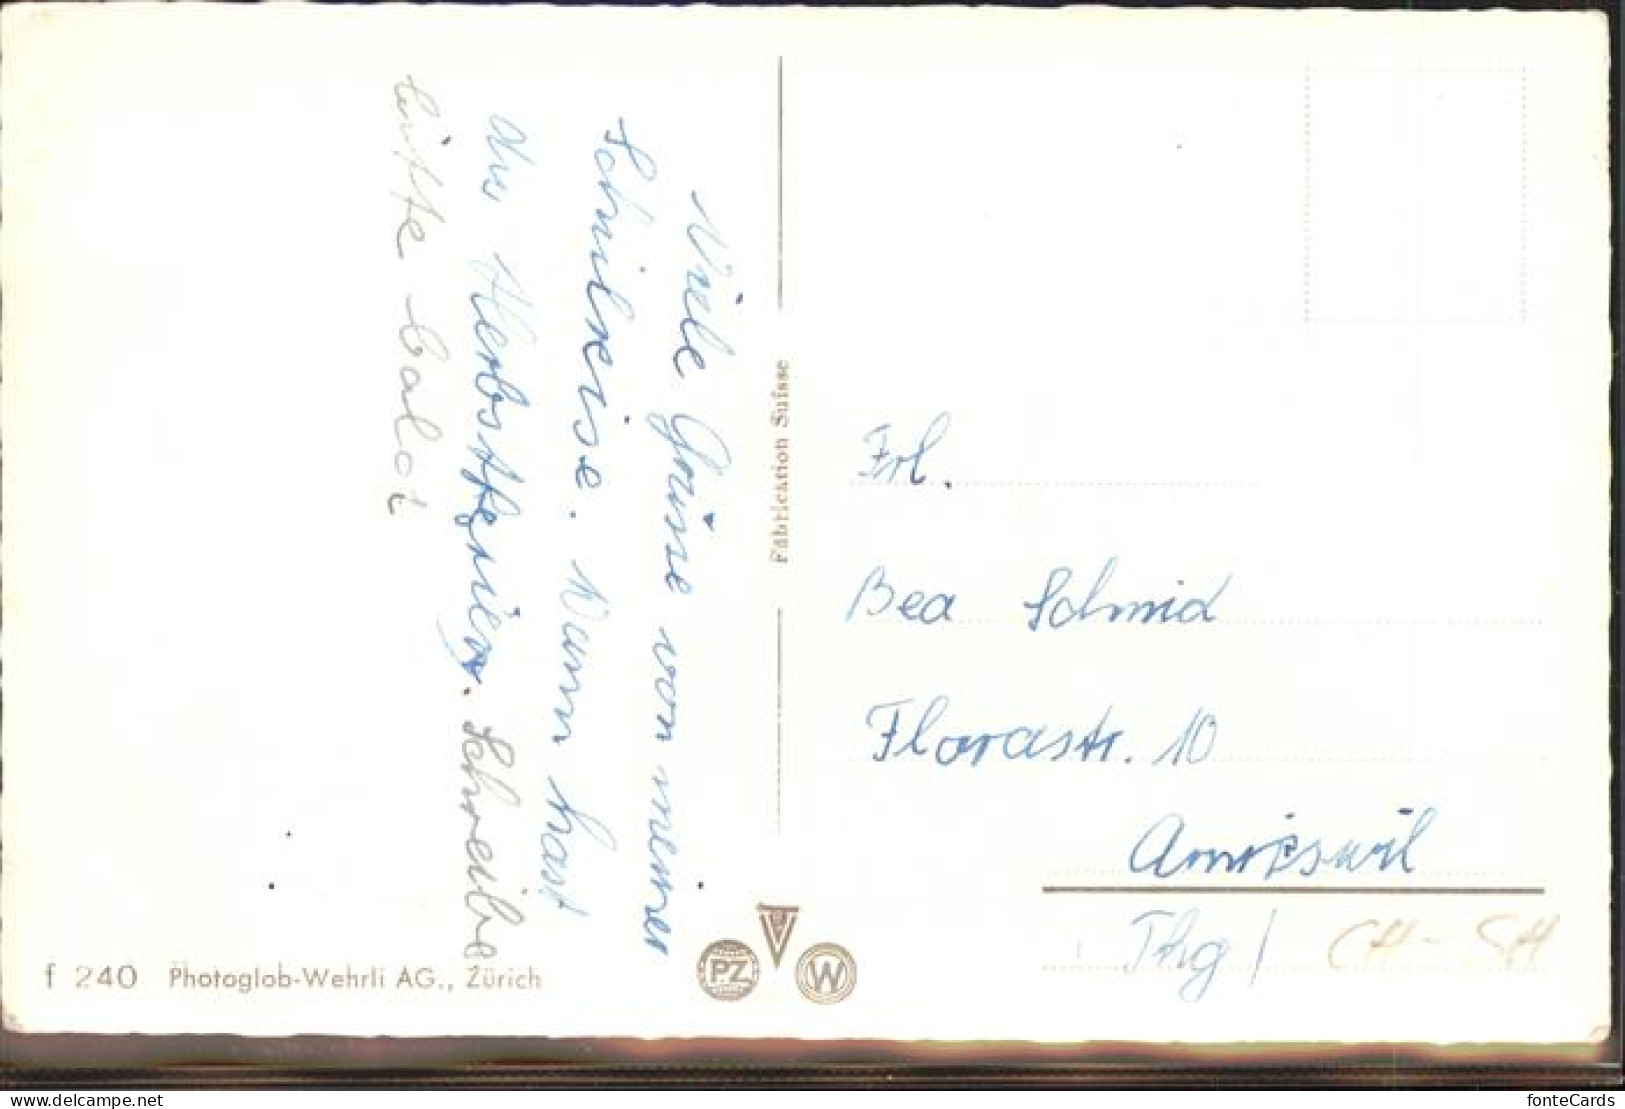 Viele Grüsse von meiner
Schulreise. Wann hast
du Herbstferien. Schreibe
bitte bald!
Fabrication Suisse
Frl.
Bea Schmid
Florastr. 10
Amriswil
Thg /
CH - SH
f 240 Photoglob-Wehrli AG., Zürich
PZ
W
delcampe.net
fonteCards